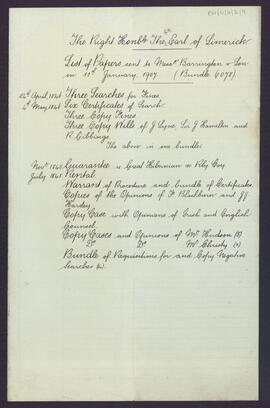 The Right Honble The Earl of Limerick
List of Papers sent to Messrs Barrington & Son
on 11th January, 1907. (Bundle 6078).
24th April, 1845 Three Searches for Fines.
6th May, 1845 Six Certificates of Search
Three Copy Fines
Three Copy Wills of J Lyne, Sir J Hamilton and
R. Gibbings.
The above in one bundle.
Novr 1845 Guarantee re Great Hibernian Rly Coy
July 1845 Rental.
Warrant of Procedure and bundle of Certificates.
Copies of the Opinions of F Blackburn and JJ
Hardey
Copy Case with Opinions of Irish and English
Counsel
Copy Cases and Opinions of Mr Hudson (3)
Do Do Mr Christy (2)
Bundle of Requisitions for and Copy Negative
Searches